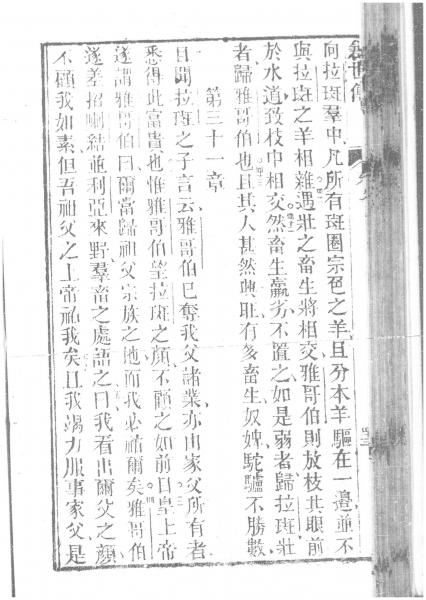 創世傳
向拉班羣中凡所有斑圈宗色之羊且分本羊驅在一邊並不
與拉班之羊相雜遇壯之畜生將相交雅哥伯則放枝其眼前
於水道致枝中相交然畜生羸劣不置之如是弱者歸拉班壯
者歸雅哥伯也且其人甚然興旺有多畜生奴婢駝驢不勝數
第三十一章
且聞拉班之子言云雅哥伯已奪我父諸業亦由家父所有者
悉得此富貴也惟雅哥伯望拉班之顏不顧之如前日皇上帝
遂謂雅哥伯曰爾當歸祖父宗族之地而我必祐爾矣雅哥伯
遂差招喇結並利亞來野羣畜之處語之曰我看出爾父之顏
不顧我如素但吾祖父之上帝祐我矣且我竭力服事家父是